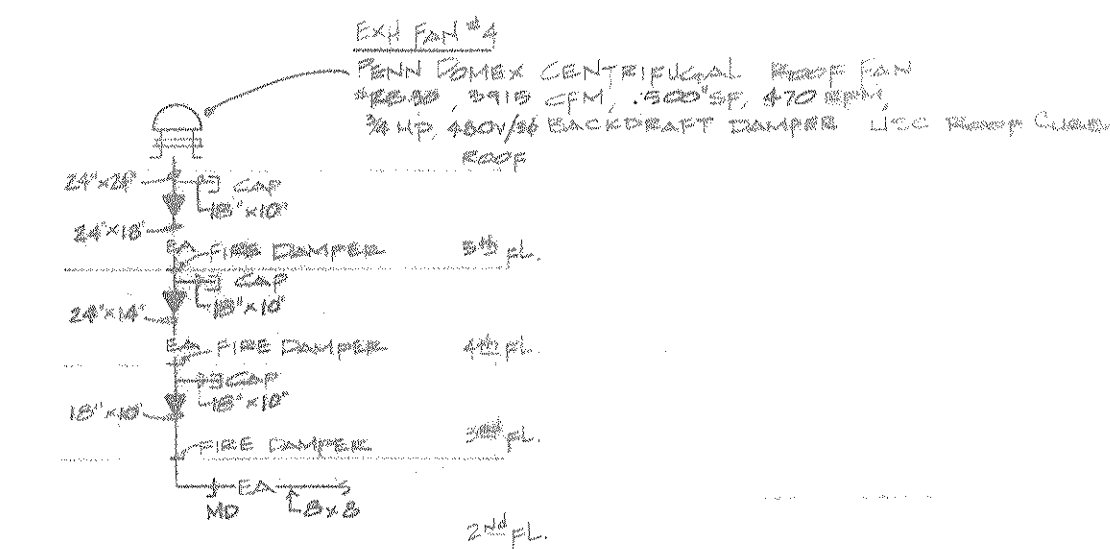 EXH FAN #4
PENN DOMEX CENTRIFUGAL ROOF FAN
3915 CFM, .500" SF, 470 RPM,
3/4 HP, 480V/3ϕ BACKDRAFT DAMPER USC ROOF CURB
ROOF
CAP
18"x10"
24"x18"
EA FIRE DAMPER 5th FL.
CAP
24"x14" 18"x10"
EA FIRE DAMPER 4th FL.
CAP
18"x10" 18"x10"
FIRE DAMPER 3rd FL.
EA
MD 8x8
2nd FL.